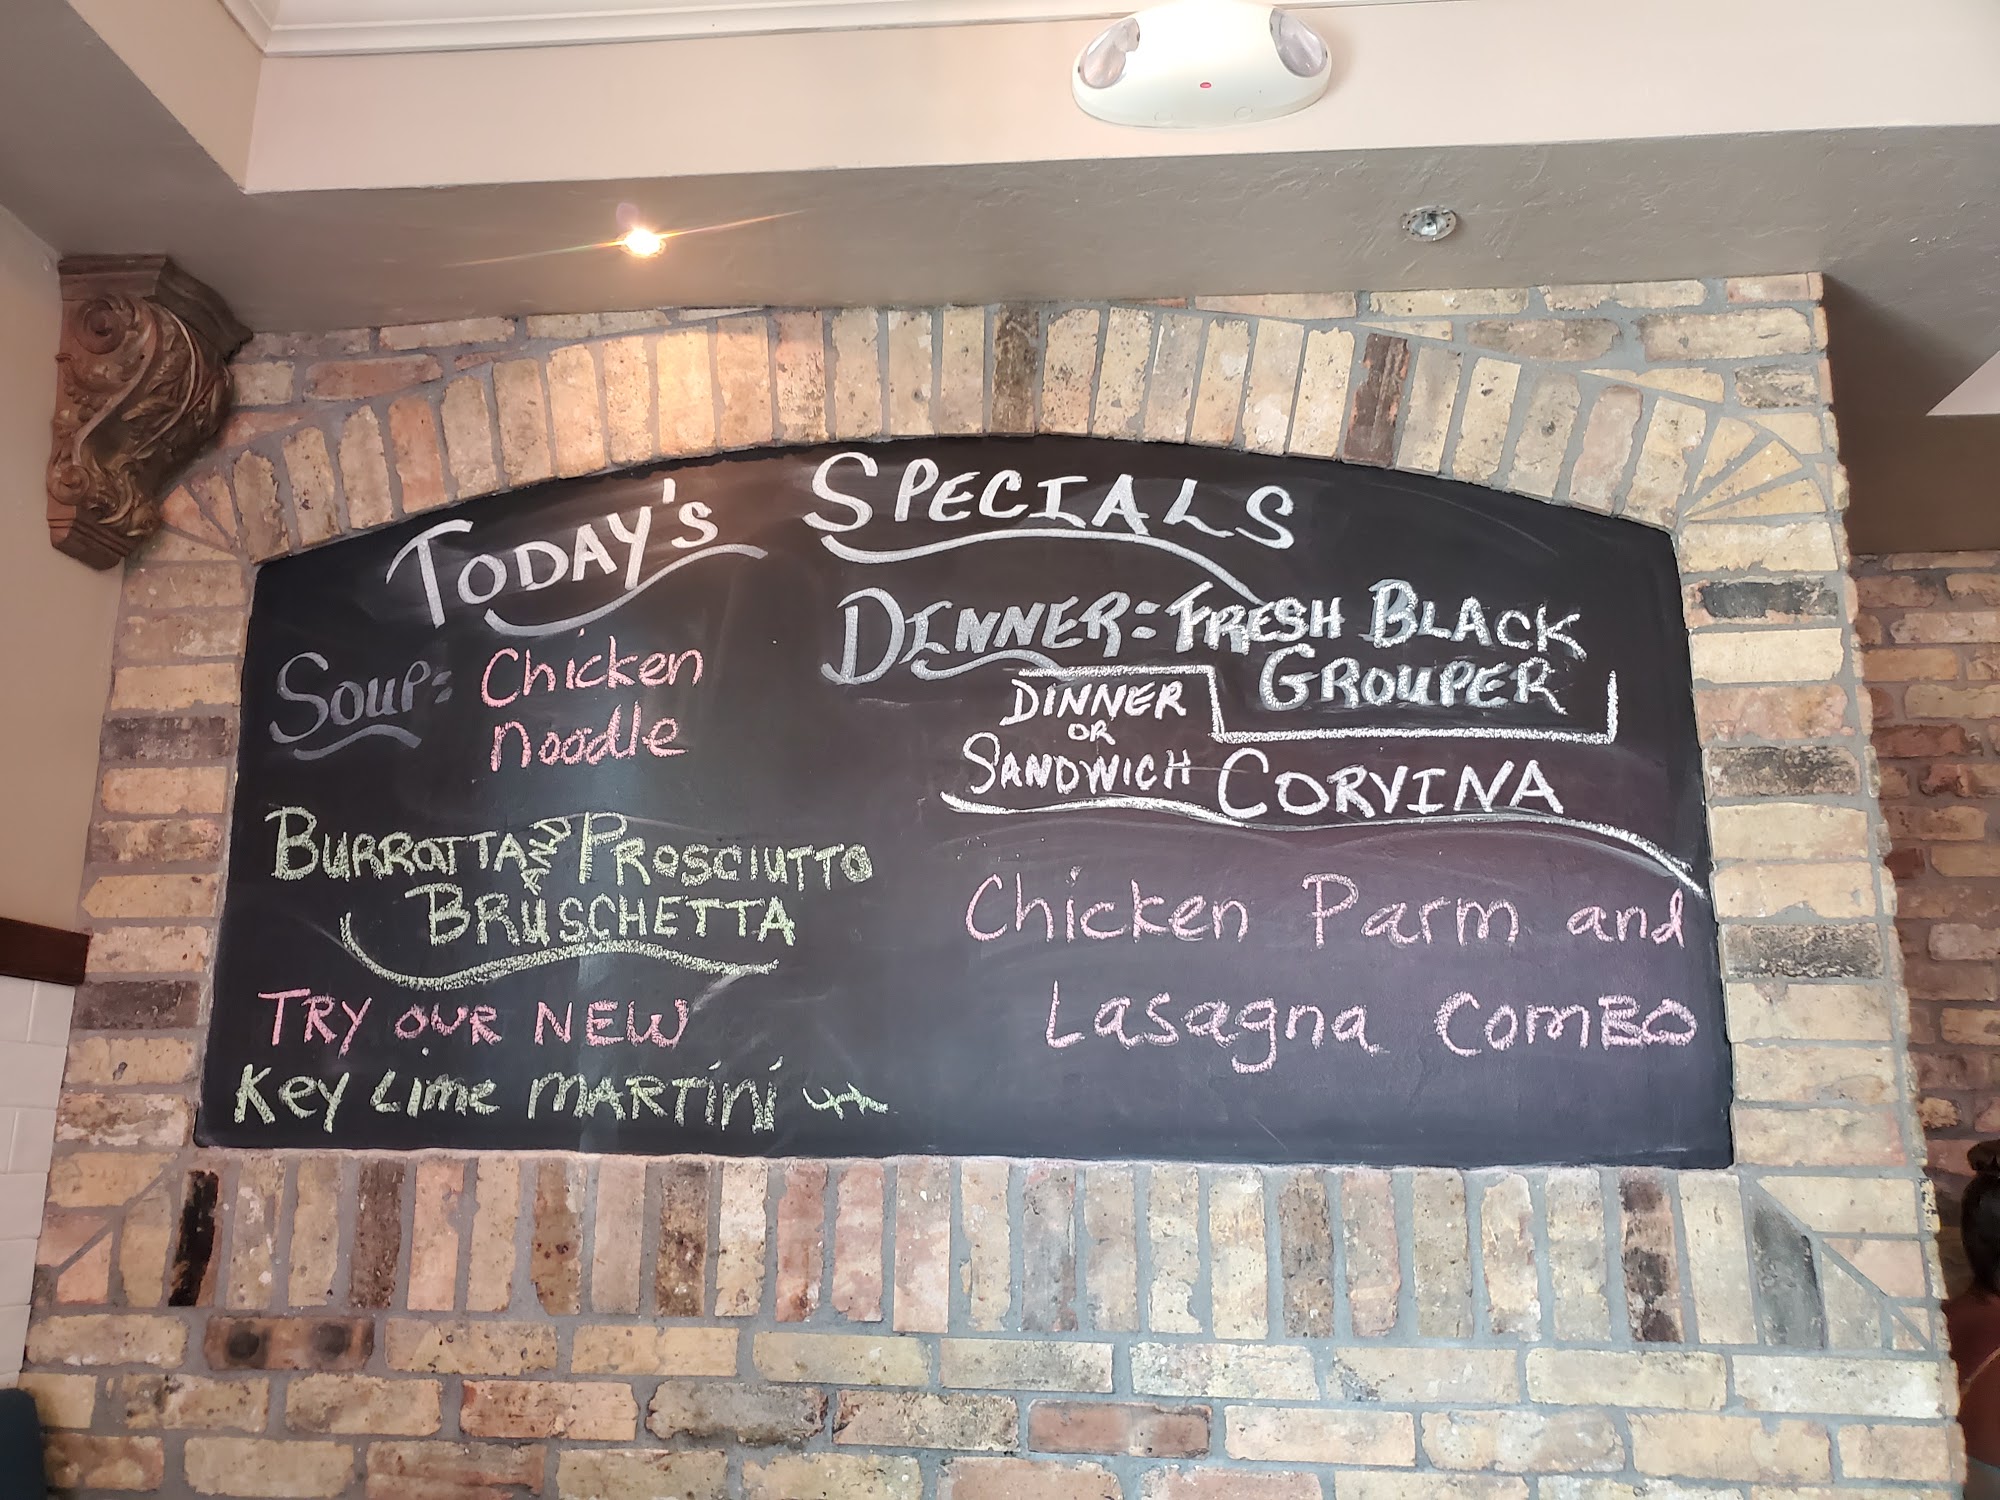 TODAY'S SPECIALS
SOUP: Chicken
noodle
BURRATTA AND PROSCIUTTO
BRUSCHETTA
TRY OUR NEW
Key Lime MARTini
DINNER: FRESH BLACK
GROUPER
DINNER
OR
SANDWICH CORVINA
Chicken Parm and
Lasagna ComBO